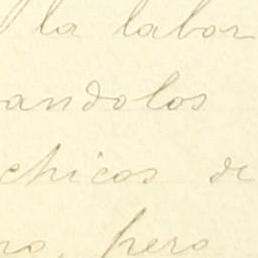 la labor
andolos
chicos de
ro, pero